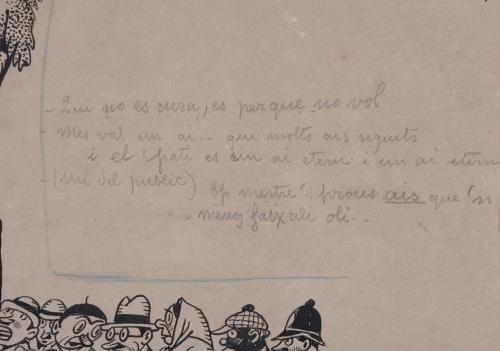 - Qui no es cura, es perque no vol
- Mes val un ai... que molts ais seguits
i el patí es un ai etern i un ai etern
(Un del public) Ep mestre! prous ais que 'n
faix ali oli...